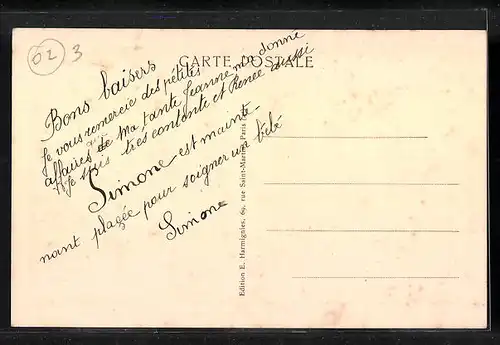 02 3
CARTE POSTALE
Bons baisers
Je vous remercie des pétites
affaires que ma tante Jeanne ma donné
Je suis très contente et Renée aussi
Simone est mainte-
nant plagée pour soigner un bébé
Simone
Edition E. Harmignies, 69, rue Saint-Martin, Paris